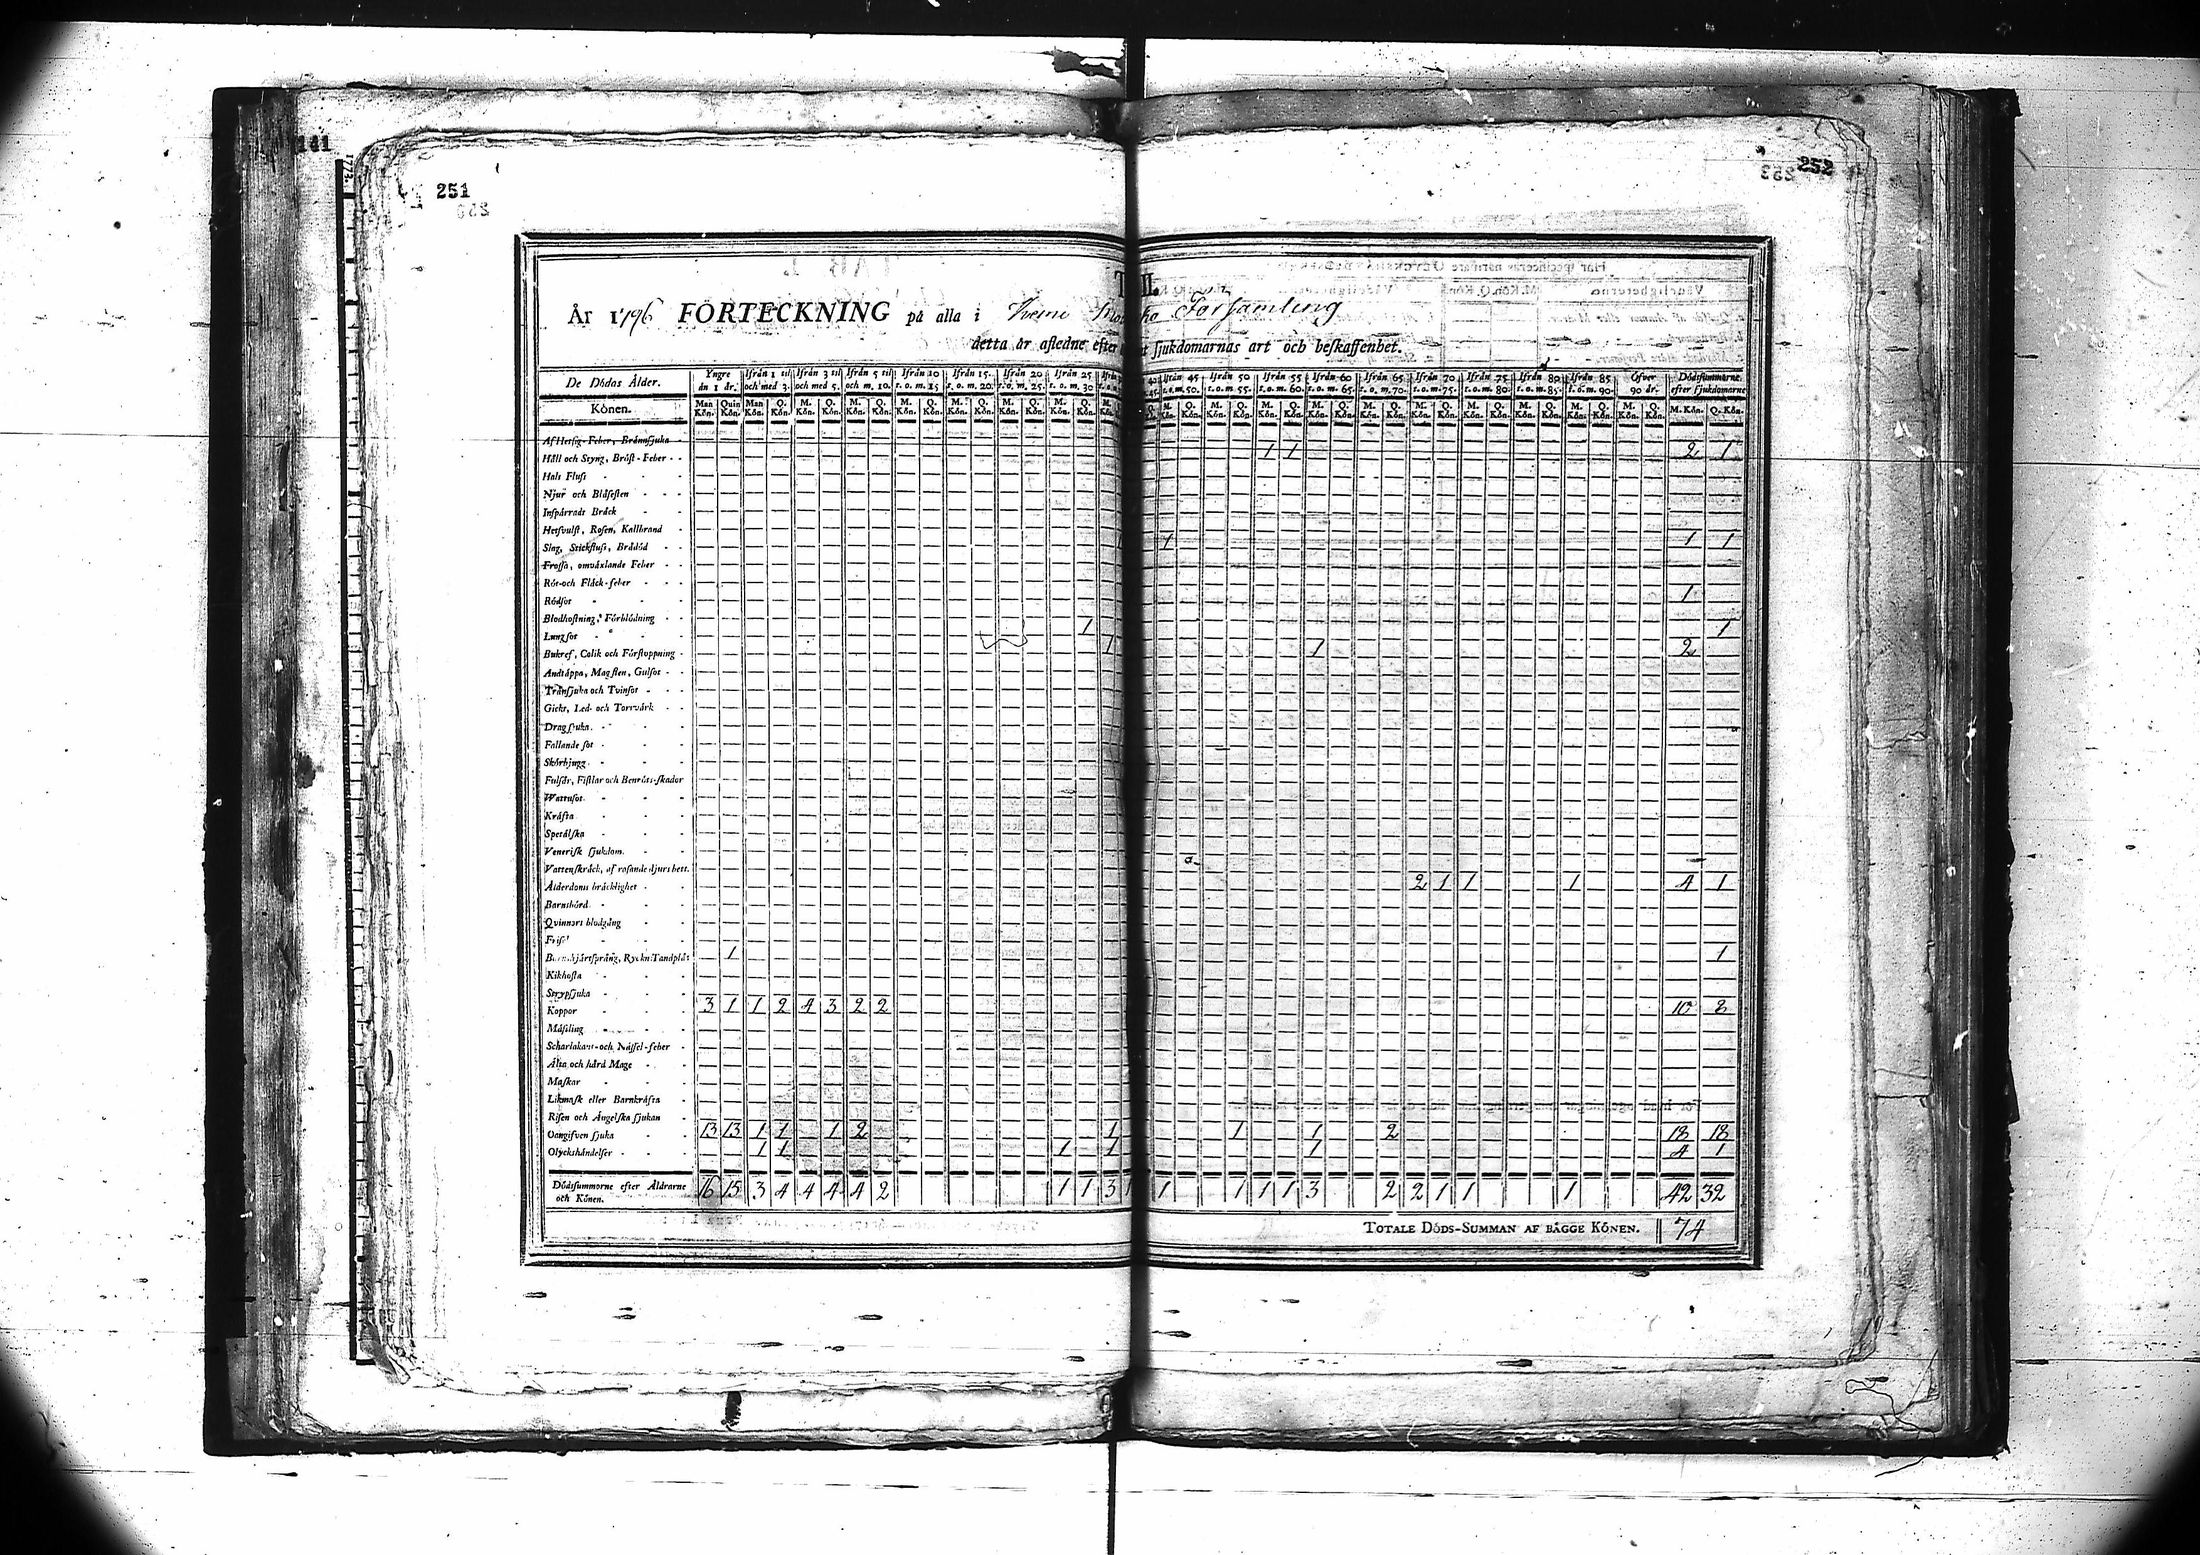 141
251
252
TAB. II.
År 1796 FÖRTECKNING på alla i Församling
detta år afledne efter sjukdomarnas art och beskaffenhet.
De Dödas Ålder. Yngre än 1 år. Ifrån 1 til och med 3. Ifrån 3 til och med 5. Ifrån 5 til och m. 10. Ifrån 10 t. o. m. 15 Ifrån 15 t. o. m. 20. Ifrån 20 t. o. m. 25. Ifrån 25 t. o. m. 30 Ifrån 45 t. o. m. 50. Ifrån 50 t. o. m. 55. Ifrån 55 t. o. m. 60. Ifrån 60 t. o. m. 65. Ifrån 65 t. o. m. 70. Ifrån 70 t. o. m. 75. Ifrån 75 t. o. m. 80. Ifrån 80 t. o. m. 85. Ifrån 85 t. o. m. 90. Öfver 90 år. Dödssummorne efter sjukdomarne
Könen. Man Kön. Quin Kön. Man Kön. Q. Kön. M. Kön. Q. Kön. M. Kön. Q. Kön. M. Kön. Q. Kön. M. Kön. Q. Kön. M. Kön. Q. Kön. M. Kön. Q. Kön. M. Kön. Q. Kön.
Af Hetsig-Feber, Brännsjuka
Håll och Styng, Bröst-Feber 1 1 2 1
Hals Fluss
Njur och Blåsesten
Inspärradt Bråck
Hetsvulst, Rosen, Kallbrand
Slag, Stickfluss, Brådöd 1 1 1
Frossa, omväxlande Feber
Röt-och Fläck-feber
Rödsot 1
Blodhostning, Förblödning
Lungsot 1 1
Bukref, Colik och Förstoppning 1 1 2
Andtäppa, Magsten, Gulsot
Transjuka och Tvinsot
Gickt, Led- och Torrvärk
Dragsjuka
Fallande sot
Skörbjugg
Fulsår, Fistlar och Benröts-skador
Wattusot
Kräfta
Spetälska
Venerisk sjukdom.
Vattenskräck, af rasande djurs bett.
Ålderdoms bräcklighet 2 1 1 1 4 1
Barnsbörd
Qvinnors blodgång
Frisel
Barns hjärtsprång, Ryckn: Tandplåt 1 1
Kikhosta
Strypsjuka
Koppor 3 1 1 2 4 3 2 2 10 8
Mässling
Scharlakans-och Nässel-feber
Älta och hård Mage
Maskar
Likmask eller Barnkräfta
Risen och Ängelska sjukan
Oangifven sjuka 13 13 1 1 1 2 1 1 1 2 18 18
Olyckshändelser 1 1 1 1 1 4 1
Dödssummorne efter Åldrarne och Könen. 16 15 3 4 4 4 4 2 1 1 3 1 1 1 1 1 3 2 2 1 1 1 42 32
TOTALE DÖDS-SUMMAN AF BÄGGE KÖNEN. 74